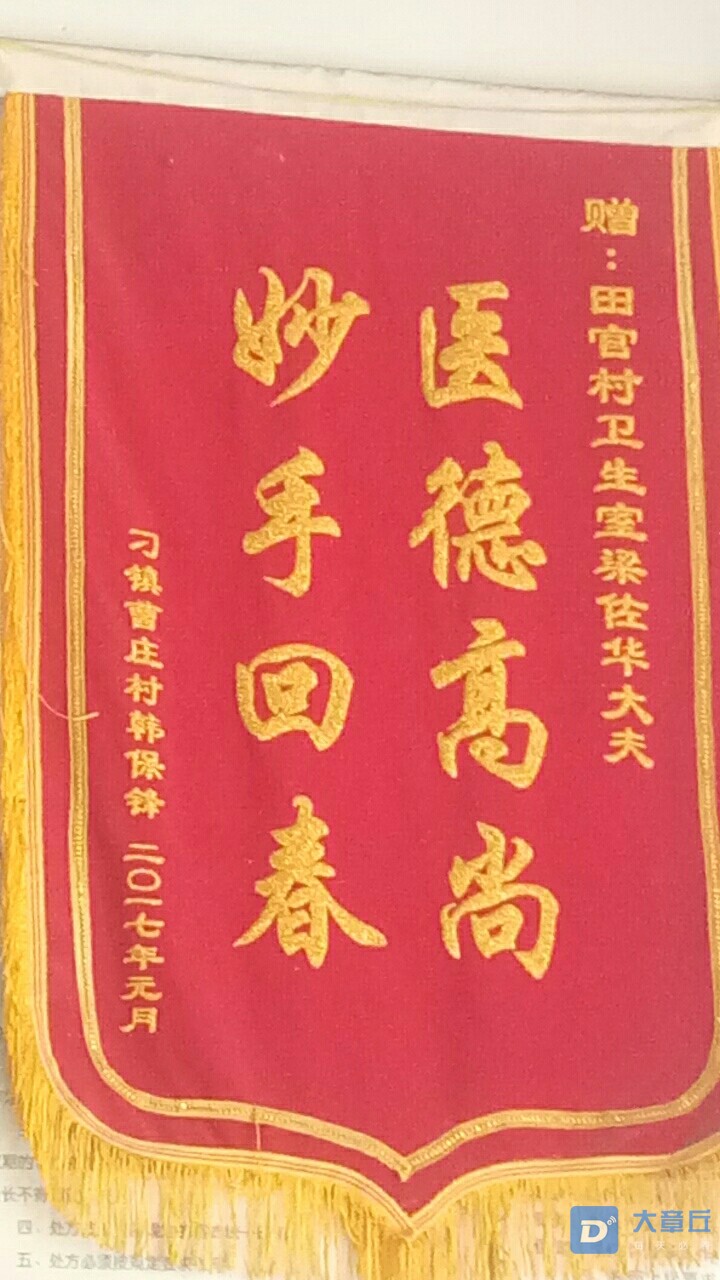 赠：田官村卫生室梁佐华大夫
医德高尚
妙手回春
刁镇曹庄村韩保锋 二〇一七年元月
四、处方
五、处方必须按规定
大章丘